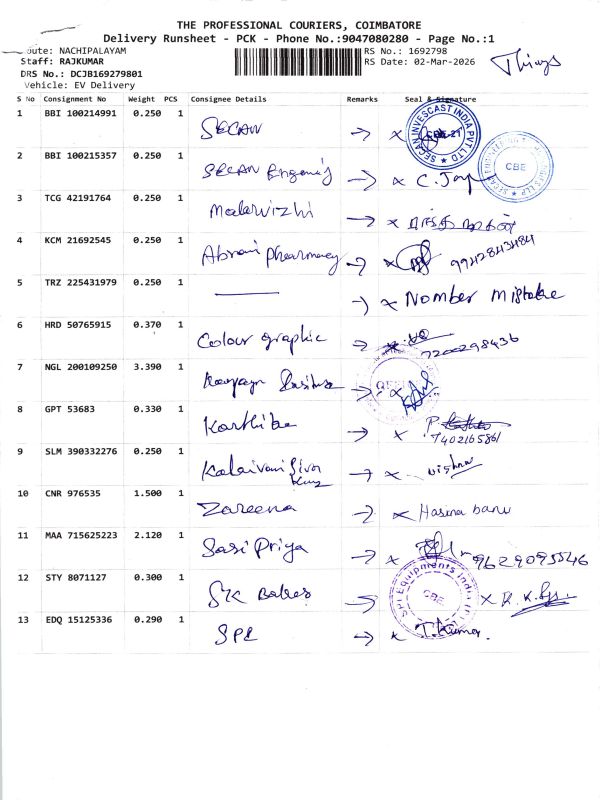 THE PROFESSIONAL COURIERS, COIMBATORE
Delivery Runsheet - PCK - Phone No.:9047080280 - Page No.:1
oute: NACHIPALAYAM RS No.: 1692798
Staff: RAJKUMAR RS Date: 02-Mar-2026
DRS No.: DCJB169279801
Vehicle: EV Delivery
S No Consignment No Weight PCS Consignee Details Remarks Seal & Signature
1 BBI 100214991 0.250 1 SECAN SECAN INVESCAST INDIA PVT LTD CBE-21
2 BBI 100215357 0.250 1 SECAN C. CBE
3 TCG 42191764 0.250 1 Malarvizhi
4 KCM 21692545 0.250 1 Abrami Phearmacy
5 TRZ 225431979 0.250 1 Nomber Mistake
6 HRD 50765915 0.370 1 Colour graphic 7200298436
7 NGL 200109250 3.390 1
8 GPT 53683 0.330 1 Karthika P. 7402165861
9 SLM 390332276 0.250 1 Kalaivani vishnu
10 CNR 976535 1.500 1 Zareena Hasina banu
11 MAA 715625223 2.120 1 Sasi Priya 9629095546
12 STY 8071127 0.300 1 SK SPI Equipments India CBE.
13 EDQ 15125336 0.290 1 SPE T. Kumar.